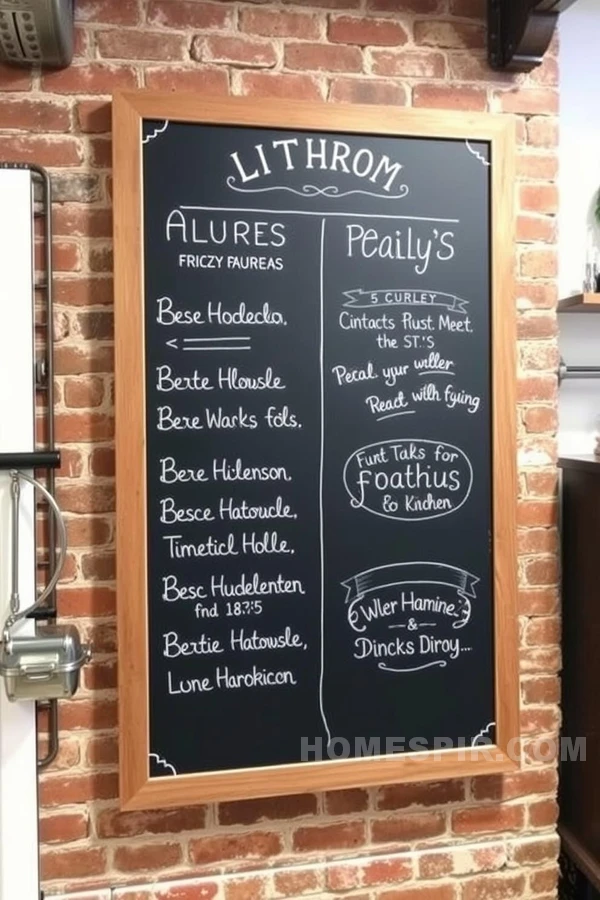 LITHROM
ALURES
FRICZY PAUREAS
Bese Hodecko.
Berte Hlousle
Bere Warks fols.
Bere Hilenson,
Besce Hatoucle,
Timeticl Holle,
Besc Hudelenten
fnd 183:5
Bertie Hatowsle,
Lune Harokicon
Peaily's
5 CURLEY
Cintacts Rust Meet.
the ST.'S
Pecal. your willer
React with fying
Funt Taks for
foathius
& Kinchen
Wler Hamine.
&
Dincks Diroy...
HOMESPIR.COM